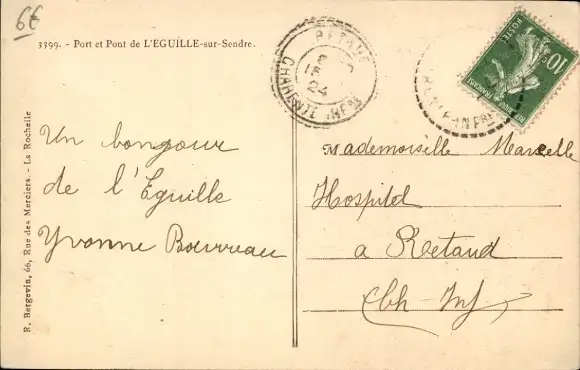 6€
3399. - Port et Pont de L'EGUILLE-sur-Sendre.
R. Bergevin, 66, Rue des Merciers. - La Rochelle
Un bonjour
de l'Eguille
Yvonne Bourreau
RETAUD
24
CHARENTE INFRE
10c
POSTES
Mademoiselle Marcelle
Hospital
a Retaud
Ch-Inf